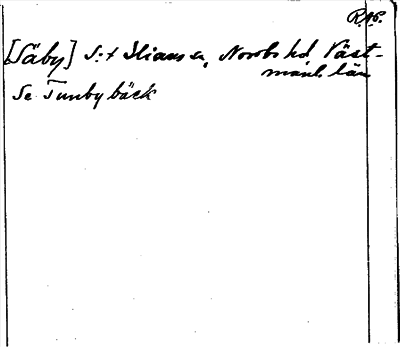 R.A6.
[Säby] S:t Ilians sn, Norrbo hd Väst-
manl. län
Se Tunby bäck